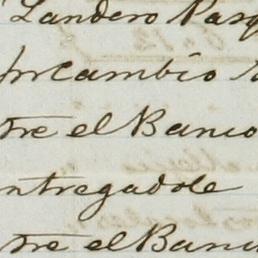 Landero Pasq
por cambio
tre el Banco
ntregadole
tre el Banc